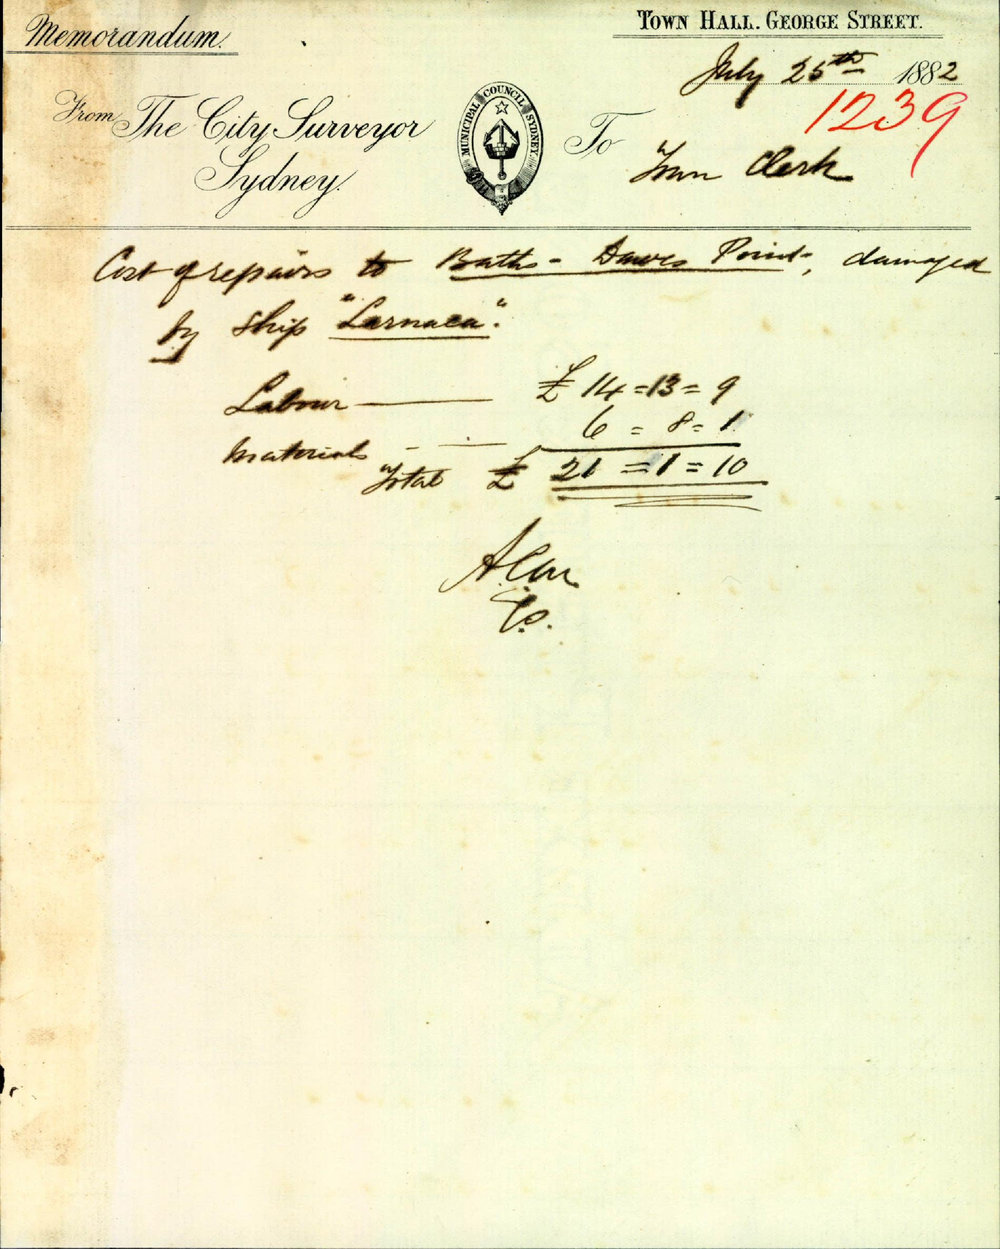 Memorandum.
TOWN HALL. GEORGE STREET.
July 25th 1882
1239
From The City Surveyor
Sydney.
MUNICIPAL COUNCIL SYDNEY
To
Town Clerk
Cost of repairs to Baths - Dawes Point, damaged
by ship "Larnaca".
Labour — £ 14 = 13 = 9
Materials - — 6 = 8 = 1
Total £ 21 = 1 = 10